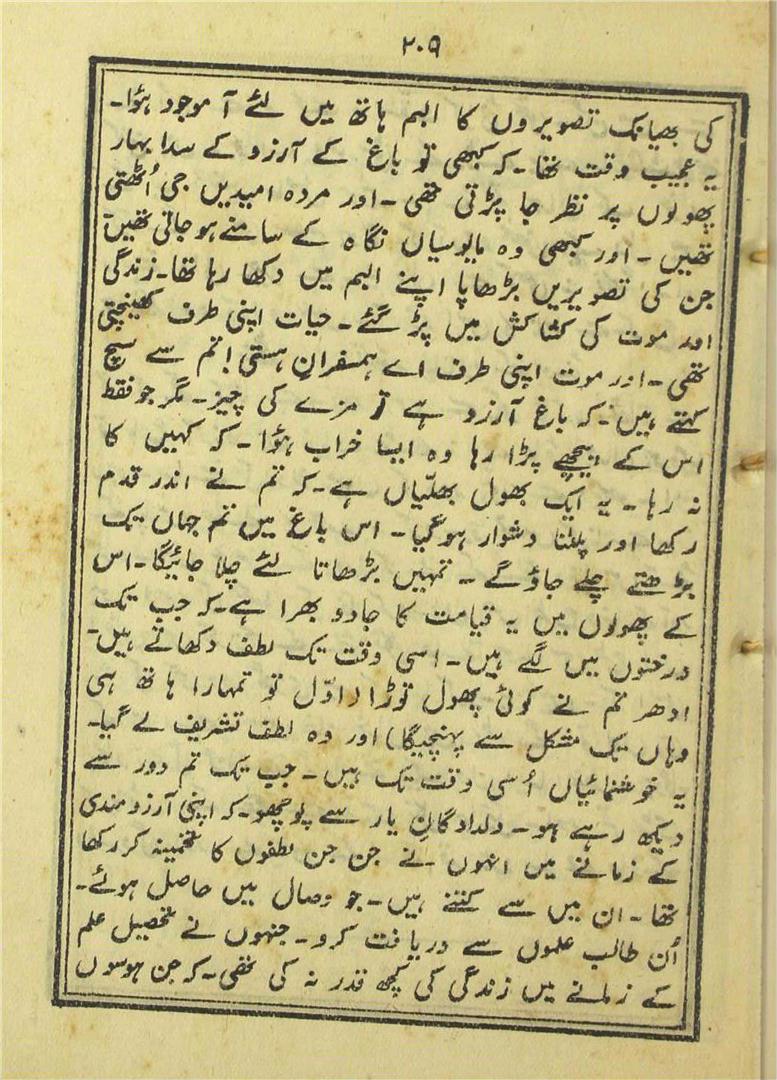 ۲۰۹
کی بھیانک تصویروں کا البم ہاتھ میں لئے آ موجود ہؤا۔
یہ عجیب وقت تھا۔ کہ کبھی تو باغ کے آرزو کے سدا بہار
پھولوں پر نظر جا پڑتی تھی۔ اور مردہ امیدیں جی اُٹھتی
تھیں۔ اور کبھی وہ مایوسیاں نگاہ کے سامنے ہو جاتی تھیں
جن کی تصویریں بڑھاپا اپنے البم میں دکھا رہا تھا۔ زندگی
اور موت کی کشاکش میں پڑ گئے۔ حیات اپنی طرف کھینچتی
تھی۔ اور موت اپنی طرف اے ہمسفرانِ ہستی! تم سے سچ
کہتے ہیں۔ کہ باغ آرزو ہے تو مزے کی چیز۔ مگر جو فقط
اس کے پیچھے پڑا رہا وہ ایسا خراب ہؤا۔ کہ کہیں کا
نہ رہا۔ یہ ایک بھول بھلیّاں ہے۔ کہ تم نے اندر قدم
رکھا اور پلٹنا دشوار ہوگیا۔ اس باغ میں تم جہاں تک
بڑھتے چلے جاؤ گے۔ تمہیں بڑھاتا لئے چلا جائیگا۔ اس
کے پھولوں میں یہ قیامت کا جادو بھرا ہے۔ کہ جب تک
درختوں میں لگے ہیں۔ اسی وقت تک لطف دکھاتے ہیں۔
ادھر تم نے کوئی پھول توڑا (اوّل تو تمہارا ہاتھ ہی
وہاں تک مشکل سے پہنچیگا) اور وہ لطف تشریف لے گیا۔
یہ خوشنمائیاں اُسی وقت تک ہیں۔ جب تک تم دور سے
دیکھ رہے ہو۔ دلدادگانِ یار سے پوچھو۔ کہ اپنی آرزو مندی
کے زمانے میں انہوں نے جن جن لطفوں کا تخمینہ کر رکھا
تھا۔ ان میں سے کتنے ہیں۔ جو وصال میں حاصل ہوئے۔
اُن طالب علموں سے دریافت کرو۔ جنہوں نے تحصیل علم
کے زمانے میں زندگی کی کچھ قدر نہ کی تھی۔ کہ جن ہوسوں